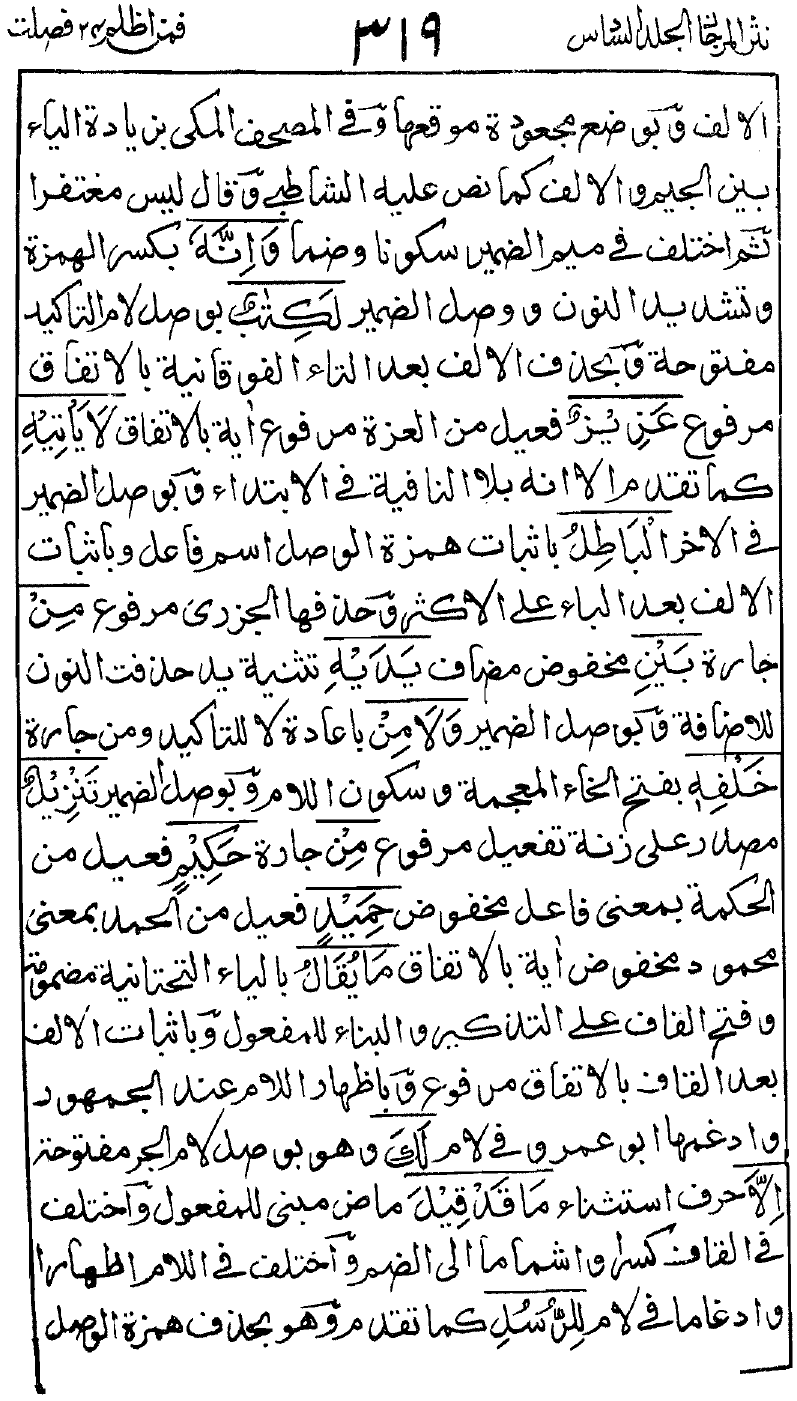 نثر المرجان الجلد السادس
٣١٩
فمن اظلم ٢٤ فصلت
الالف وبوضع مجعودة موقعها وفي المصحف المكي بزيادة الياء
بين الجيم والالف كما نص عليه الشاطبي وقال ليس مغتفرا
ثم اختلف في ميم الضمير سكونا وضما وَاِنَّهٗ بكسر الهمزة
وتشديد النون ووصل الضمير لَكِتٰبٌ بوصل لام التاكيد
مفتوحة وبحذف الالف بعد التاء الفوقانية بالاتفاق
مرفوع عَزِيْزٌ فعيل من العزة مرفوع اٰية بالاتفاق لَا يَاْتِيْهِ
كما تقدم الا انه بلا النافية في الابتداء وبوصل الضمير
في الاخر الْبَاطِلُ باثبات همزة الوصل اسم فاعل وباثبات
الالف بعد الباء على الاكثر وحذفها الجزري مرفوع مِنْ
جارة بَيْنِ مخفوض مضاف يَدَيْهِ تثنية يد حذفت النون
للاضافة وبوصل الضمير وَلَا مِنْ باعادة لا للتاكيد ومن جارة
خَلْفِهٖ بفتح الخاء المعجمة وسكون اللام وبوصل الضمير تَنْزِيْلٌ
مصدر على زنة تفعيل مرفوع مِنْ جارة حَكِيْمٍ فعيل من
الحكمة بمعنى فاعل مخفوض حَمِيْدٍ فعيل من الحمد بمعنى
محمود مخفوض اٰية بالاتفاق مَا يُقَالُ بالياء التحتانية مضمومة
وفتح القاف على التذكير والبناء للمفعول وباثبات الالف
بعد القاف بالاتفاق مرفوع وباظهار اللام عند الجمهور
وادغمها ابو عمرو في لام لَكَ وهو بوصل لام الجر مفتوحة
اِلَّا حرف استثناء مَا قَدْ قِيْلَ ماض مبني للمفعول واختلف
في القاف كسرا واشماما الى الضم واختلف في اللام اظهارا
وادغاما في لام لِلرُّسُلِ كما تقدم وهو بحذف همزة الوصل